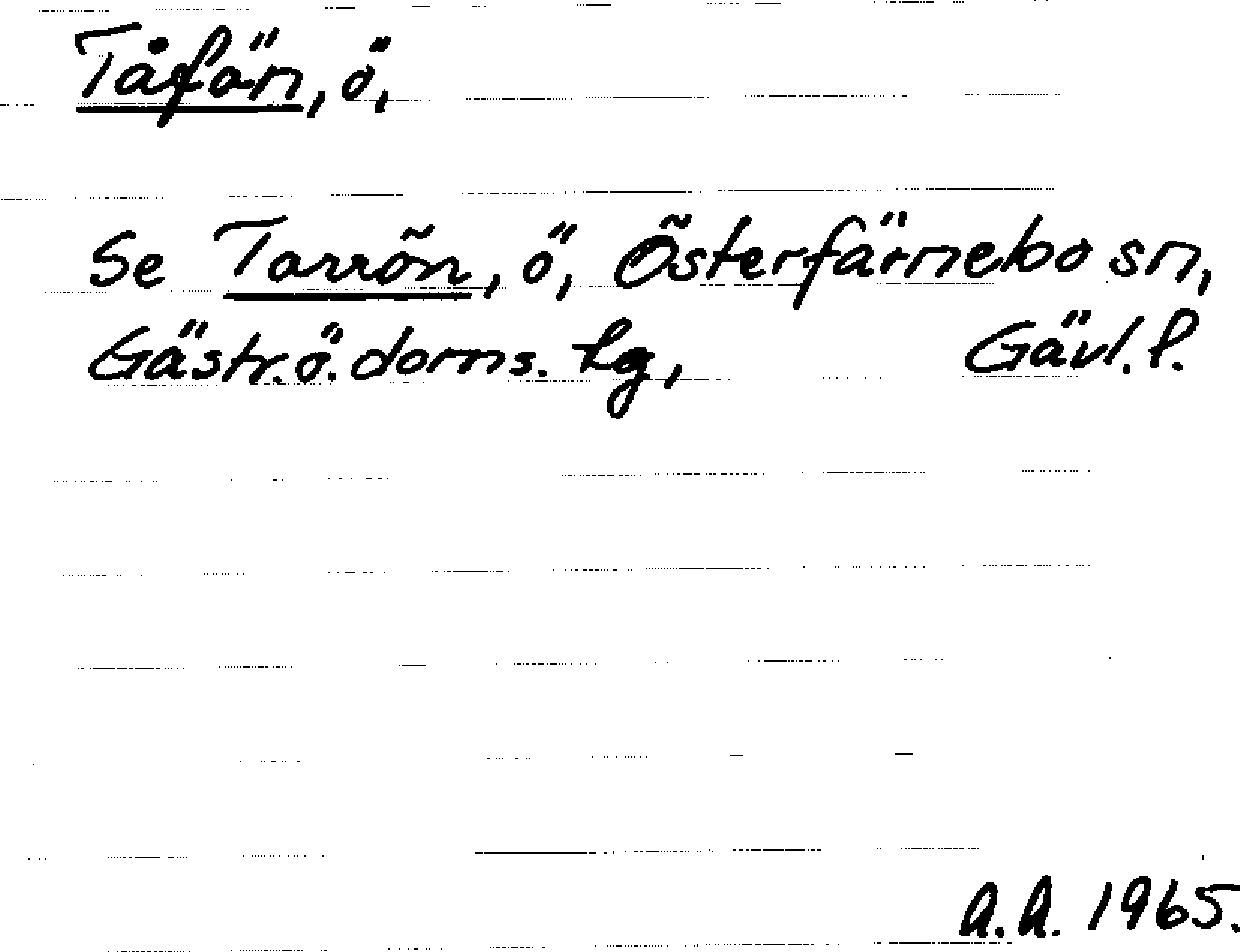 Tåfön, ö,
Se Tarrön, ö, Österfärnebo sn,
Gästr. ö. doms. hg, Gävl. l.
A.A. 1965.